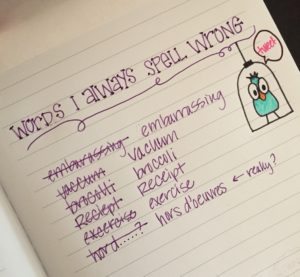 WORDS I always SPELL WRONG
tweet
embarrassing
vaccum vacuum
brocolli broccoli
Reciept Receipt
exercise
hord.....? hors d'oeuvres ← really?